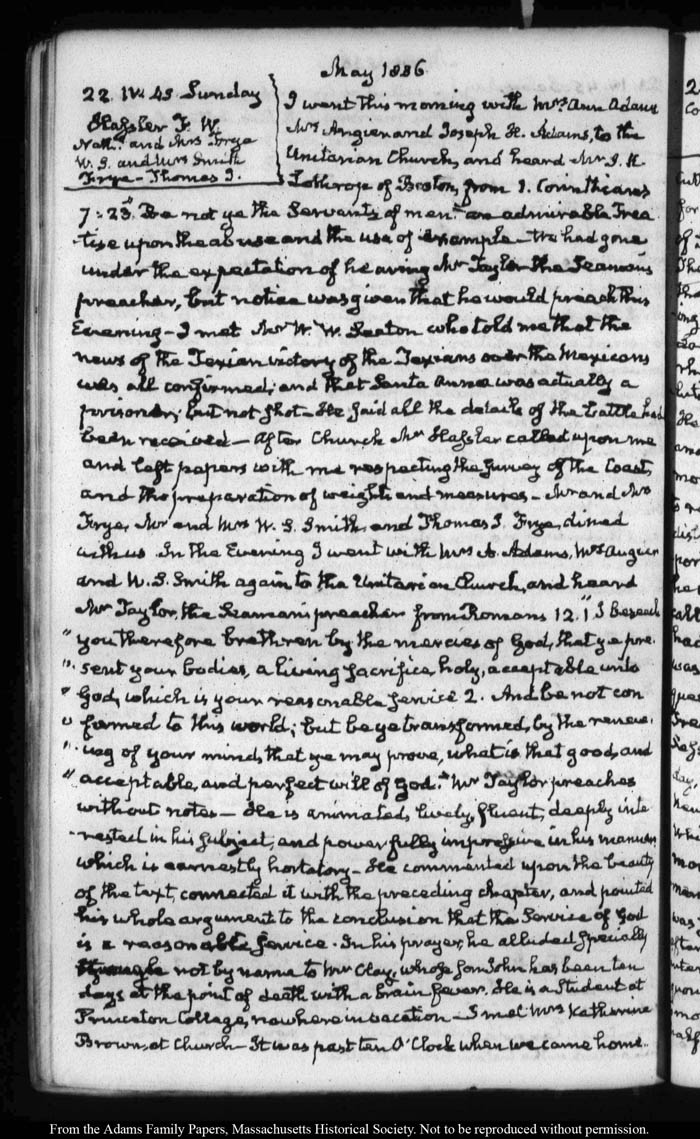 May 1836.
22. IV:45. Sunday
Hassler F. W.
Nath.l and Mrs Frye
W. S. and Mrs Smith
Frye—Thomas I.
I went this morning with Mrs Ann Adams
Mrs Angier and Joseph H. Adams, to the
Unitarian Church, and heard Mr S. K.
Lothrop of Boston, from 1. Corinthians
7:23. "Be not ye the Servants of men." an admirable Trea-
-tise upon the abuse and the use of example—We had gone
under the expectation of hearing Mr Taylor the Seamens
preacher, but notice was given that he would preach this
Evening—I met Mr W. W. Seaton who told me that the
news of the Texian victory of the Texians over the Mexicans
was all confirmed; and that Santa Anna was actually a
prisoner; but not shot—He said all the details of the battle had
been received—After Church Mr Hassler called upon me
and left papers with me respecting the survey of the Coast,
and the preparation of weights and measures—Mr and Mrs
Frye, Mr and Mrs W. S. Smith and Thomas I. Frye, dined
with us. In the Evening I went with Mrs A. Adams, Mrs Angier
and W. S. Smith again to the Unitarian Church, and heard
Mr Taylor, the Seaman's preacher from Romans 12.1 "I Beseech
" you therefore brethren by the mercies of God, that ye pre-
" sent your bodies, a living sacrifice, holy, acceptable unto
" God, which is your reasonable service 2. And be not con
" formed to this world; but be ye transformed, by the renew-
" ing of your mind, that ye may prove, what is that good, and
" acceptable, and perfect will of God." Mr Taylor preaches
without notes—He is animated, lively, fluent, deeply inte
-rested in his subject, and powerfully impressive in his manner
which is earnestly hortatory—He commented upon the beauty
of the text, connected it with the preceding chapter, and pointed
his whole argument to the conclusion that the Service of God
is a reasonable service. In his prayer, he alluded specially
though not by name to Mr Clay, whose son John has been ten
days at the point of death with a brain fever. He is a Student at
Princeton College, now here in vacation—I met Mrs Katherine
Brown, at Church—It was past ten O'Clock when we came home.
From the Adams Family Papers, Massachusetts Historical Society. Not to be reproduced without permission.